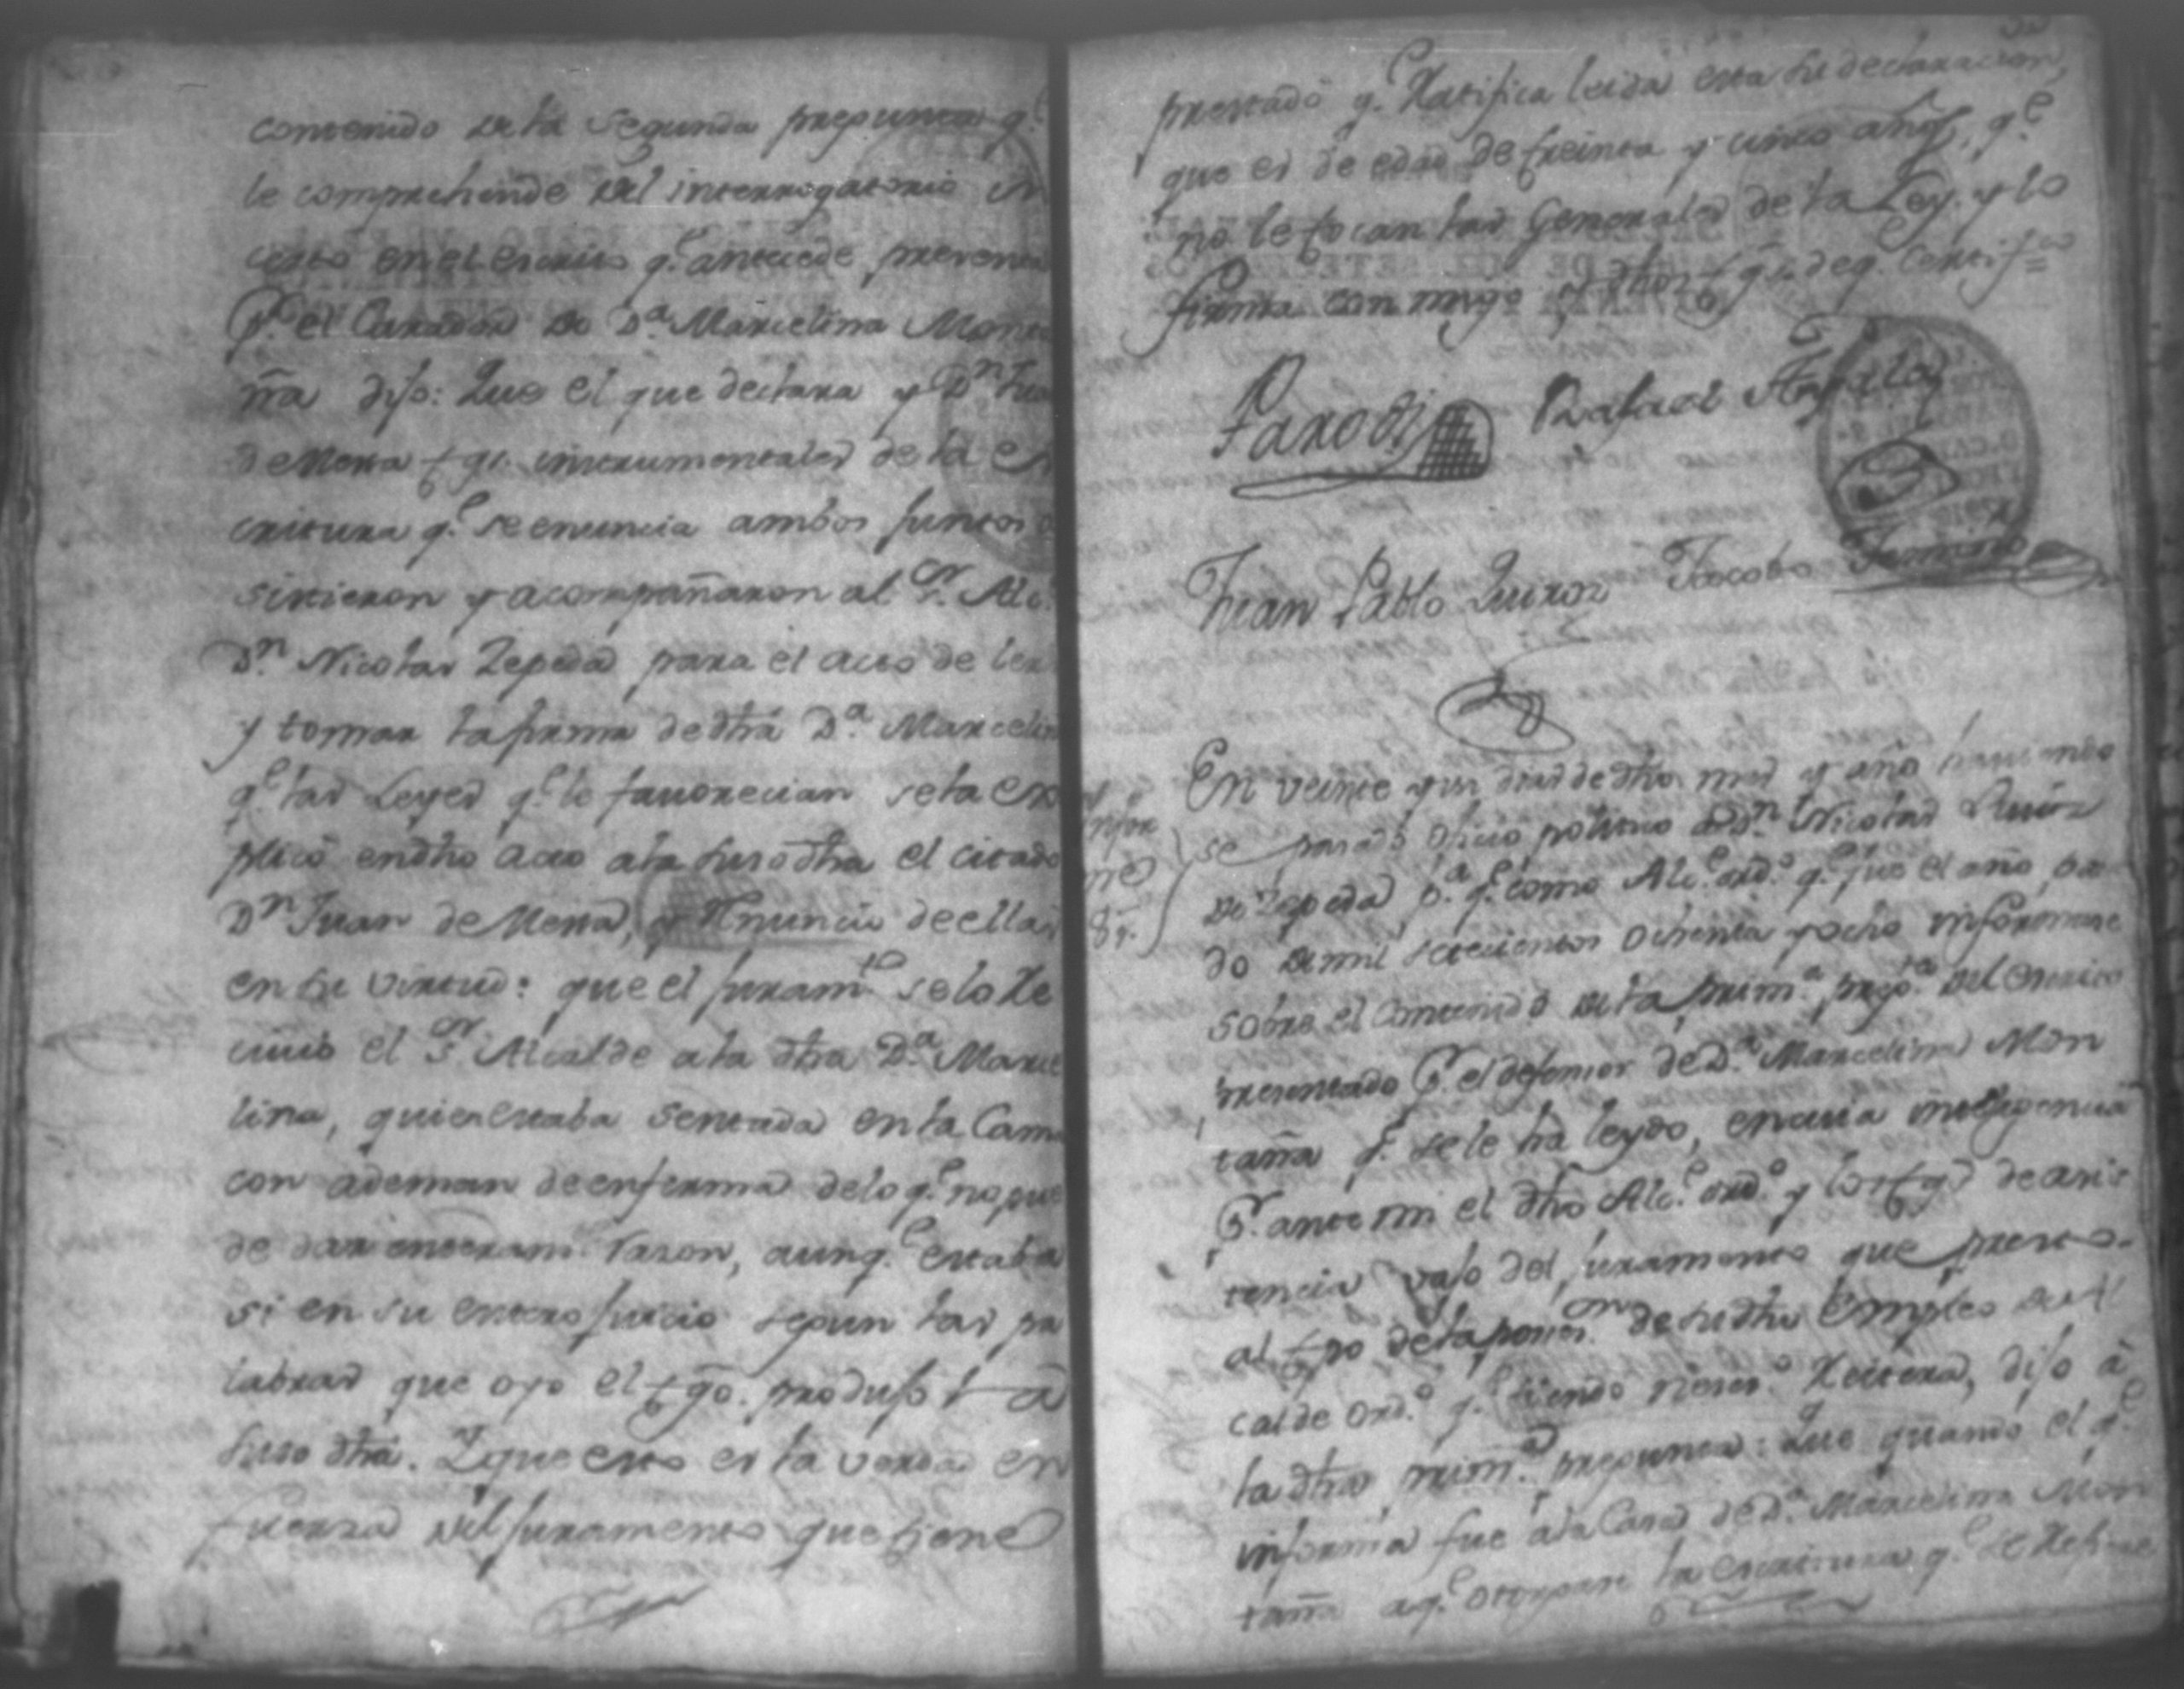 contenido de la Segunda pregunta q.e
le comprehende del interrogatorio in
certo en el escrito q.e antecede, presenta
P.r el Curador de D.a Marcelina Monta
ña dijo: Que el que declara y D.n Juan
de Mena tgs. instrumentales de la es
critura q.e se enuncia ambos juntos a
sistieron y acompañaron al S.r Alc.e
D.n Nicolas Zepeda para el acto de leer
y tomar la firma de dha D.a Marcelina
q.e las Leyes q.e le favorecian se la ex
plicó en dho acto a la suso dha el citado
D.n Juan de Mena, y Renuncio de ellas
en su virtud: que el juram.to se lo Re
civió el S.r Alcalde a la dha D.a Marce
lina, quien estaba sentada en la Cama
con ademan de enferma de lo q.e no pue
de dar enteram.te rason, aunq.e estaba
si en su entero juicio segun las pa
labras que oyo el tgo. produjo la
suso dha. Y que esto es la verdad en
fuerza del juramento que tiene
prestado q.e Ratifica leida esta su declaracion,
que es de edad de treinta y cinco años, q.e
no le tocan las Generales de la Ley. y lo
firma con migo y dhos tgs. de q.e Certifico=
Parodi Rafael Aguilar
Juan Pablo Quiroz Jacobo
Infor
me
En veinte y un dias de dho mes y año haviendo
se pasado oficio politico a D.n Nicolas Quiroz
de Zepeda p.a q.e como Alc.e ord.o q.e fue el año pa
do de mil setecientos ochenta y ocho informase
sobre el Contenido de la prim.a preg.ta del escrito
presentado P.r el defensor de D.a Marcelina Mon
taña q.e se le ha leydo, en cuia inteligencia
P.r ante mi el dho Alc.e ord.o y los tgs. de asis
tencia vajo del juramento que presto
al tpo de la poses.on de su dho Empleo de Al
calde Ord.o q.e siendo neces.o Reitera, dijo á
la dha prim.a pregunta: Que quando el q.e
informa fue a la Casa de D.a Marcelina Mon
taña a q.e otorgase la escritura q.e se Refiere